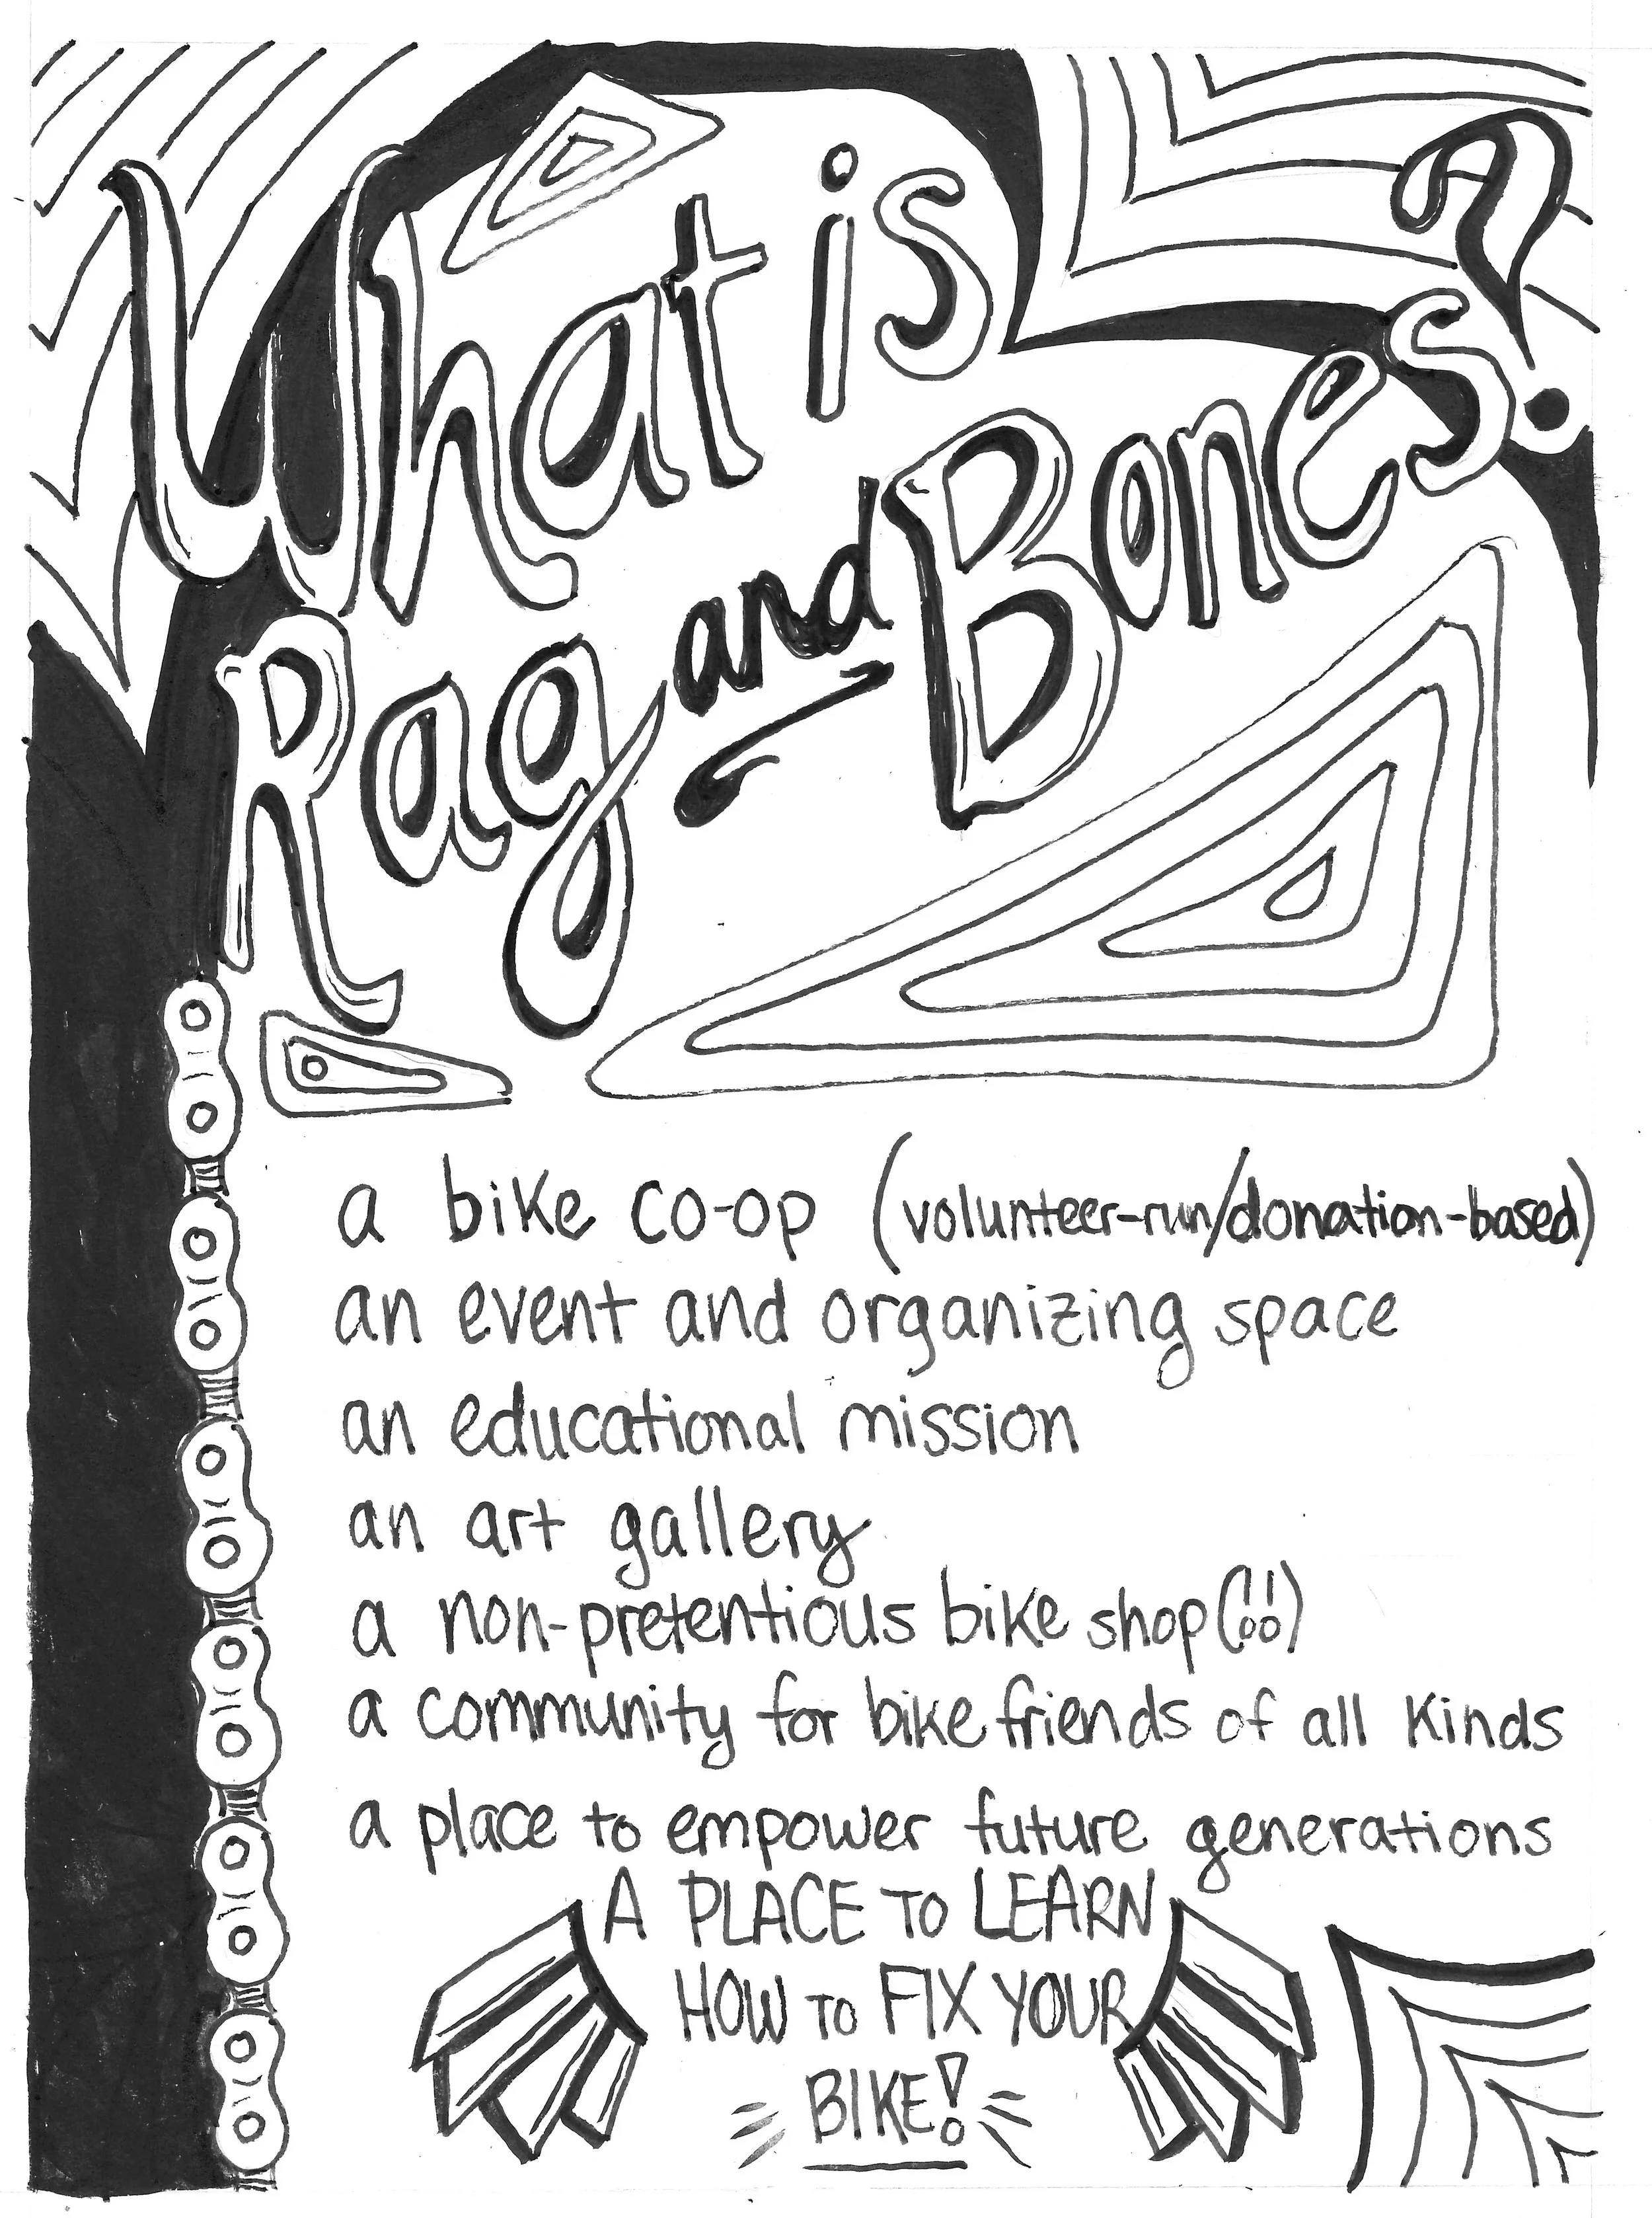 What is
Rag and Bones?
a bike co-op (volunteer-run/donation-based)
an event and organizing space
an educational mission
an art gallery
a non-pretentious bike shop(!!)
a community for bike friends of all kinds
a place to empower future generations
A PLACE TO LEARN
HOW TO FIX YOUR
BIKE!